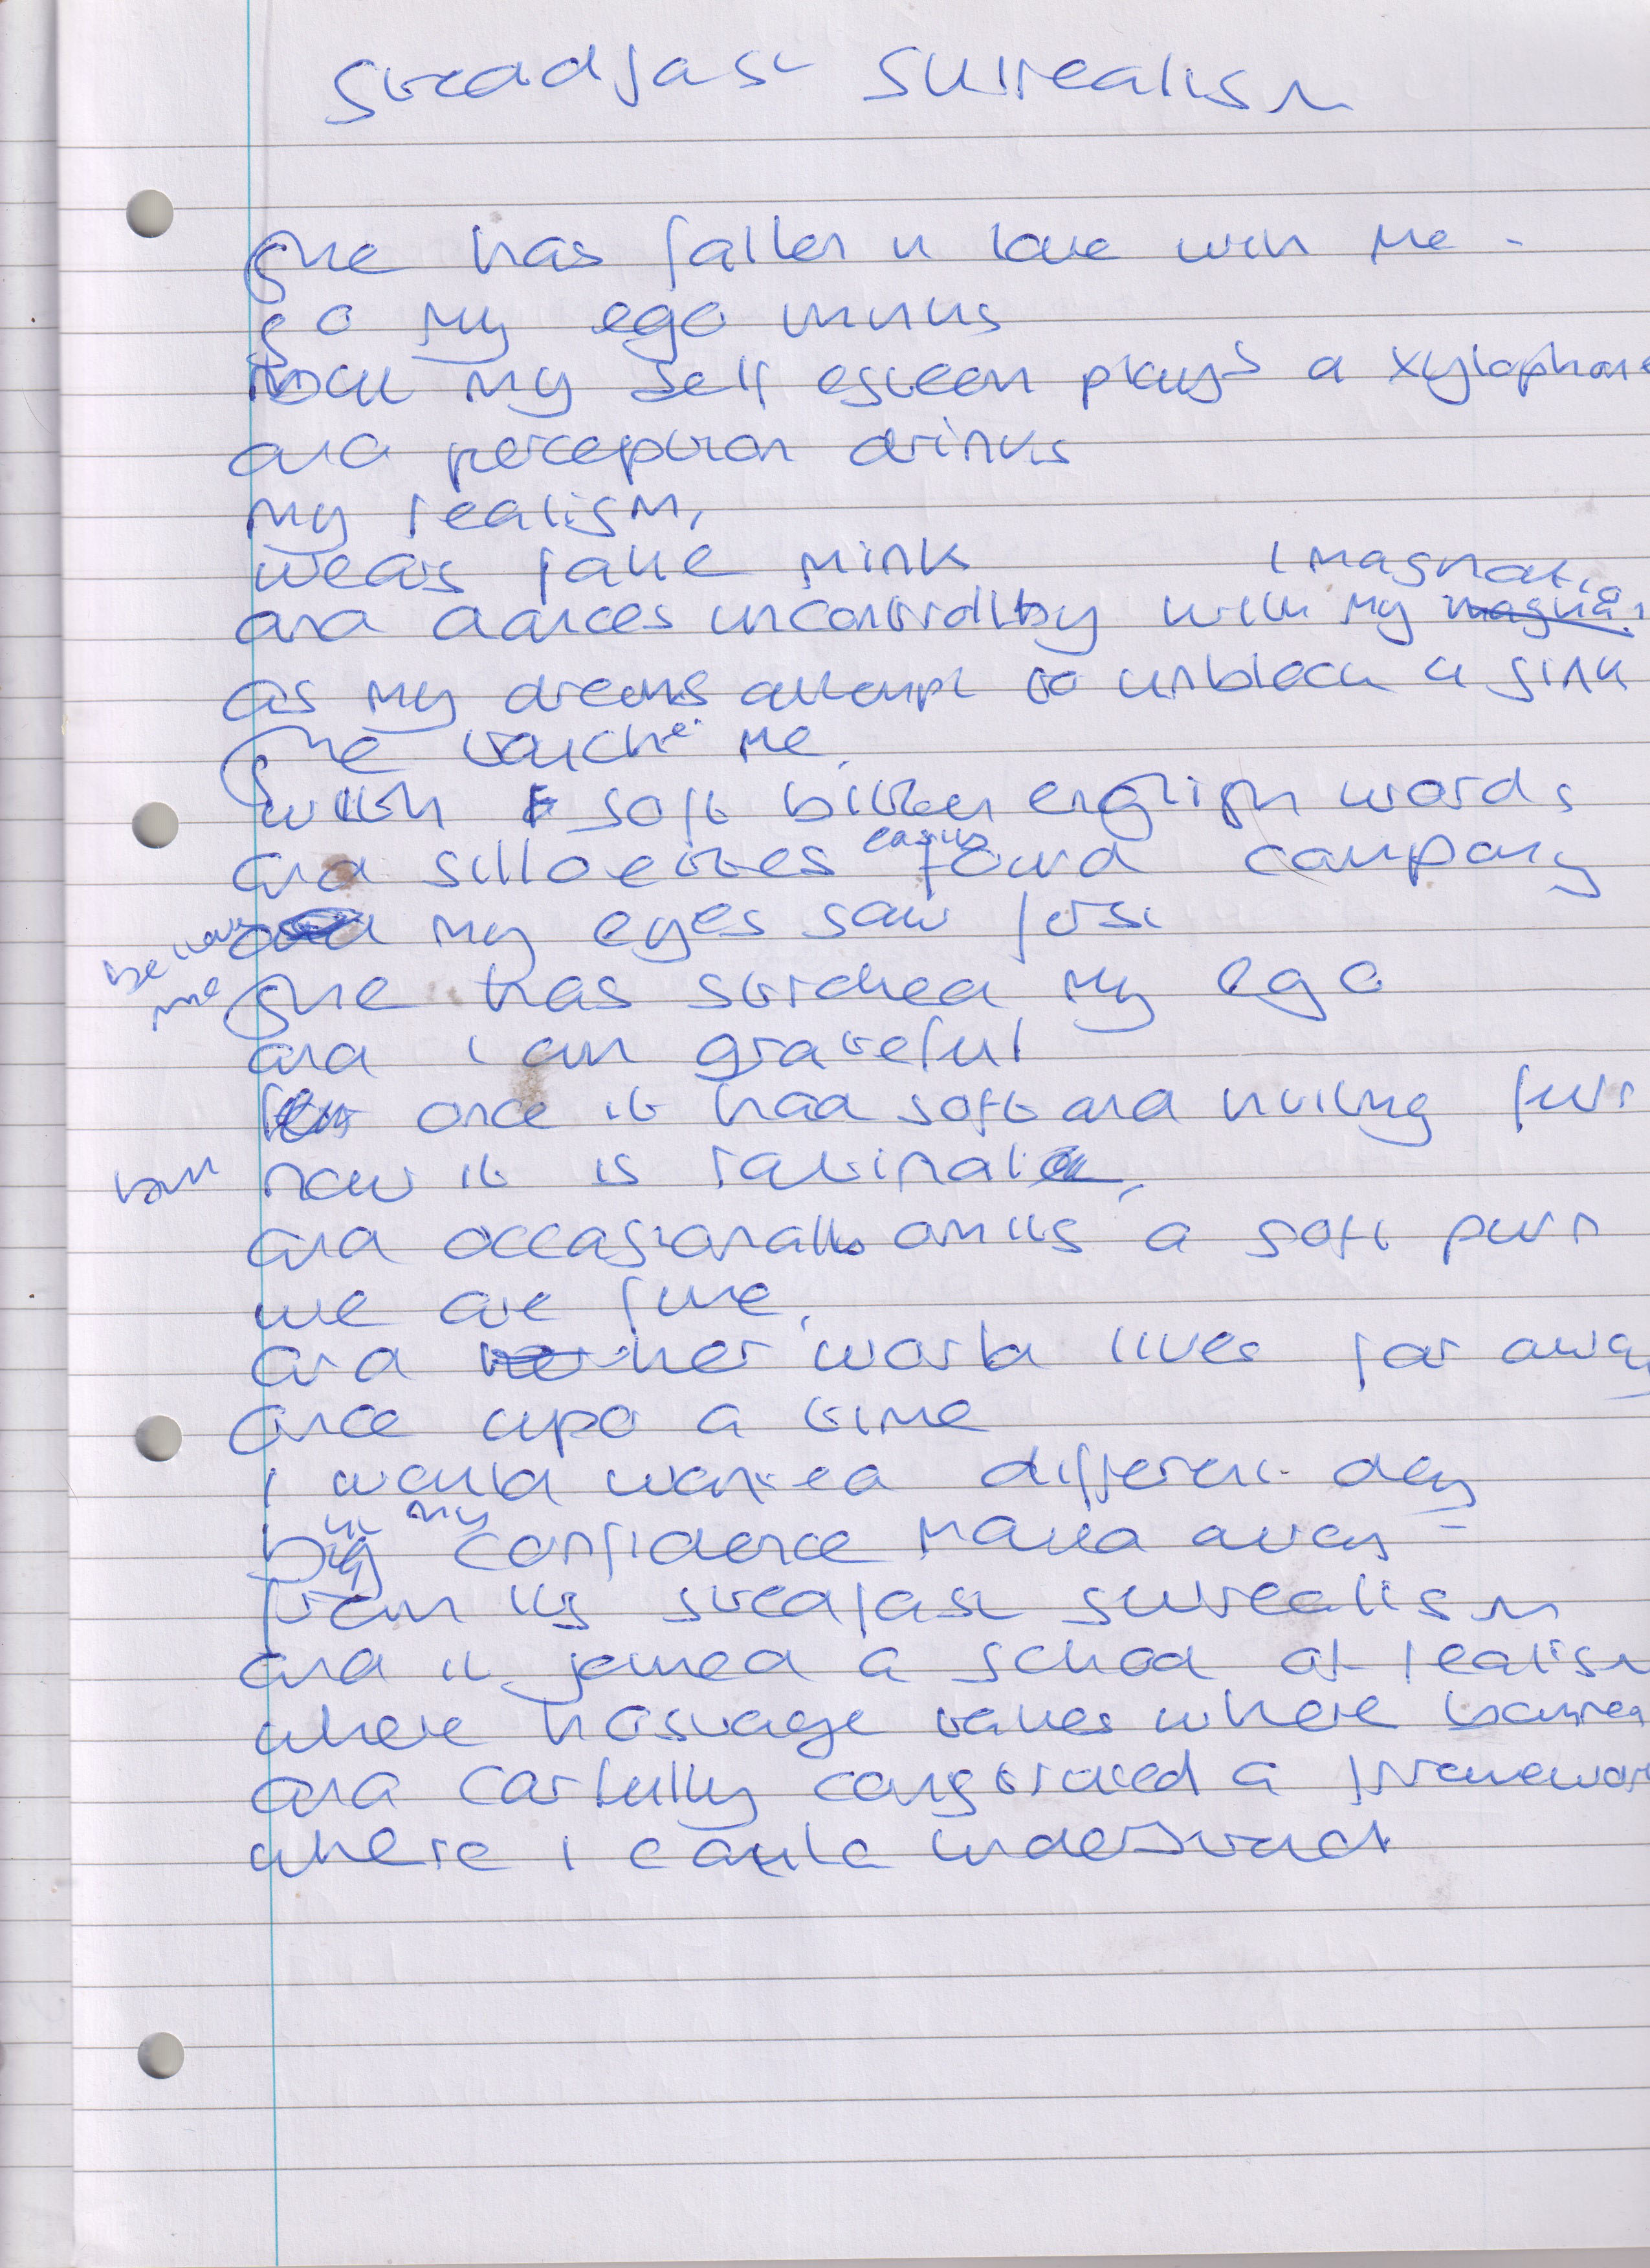 Steadfast Surrealism
She has fallen in love with me -
so my ego thinks
my self esteem plays a xylophone
and perception drinks
my realism,
wears fake mink
imagnatio
and dances uncontrollby with my
as my dreams attempt to unblock a sink
She touche me.
with soft bitten english words
and silloettes easily found company
my eyes saw first
before me
She has stroked my ego
and i am grateful
once it had soft and inviting fur
but now it is rational,
and occasionally omits a soft purr
we are fine,
and her world lives far away
once upo a time
i would wanted different day
but my confidence moved away -
from its steafast surrealism
and it joined a school of realism
where hostage takes where banned
and carfully constructed a framework
where i could understand